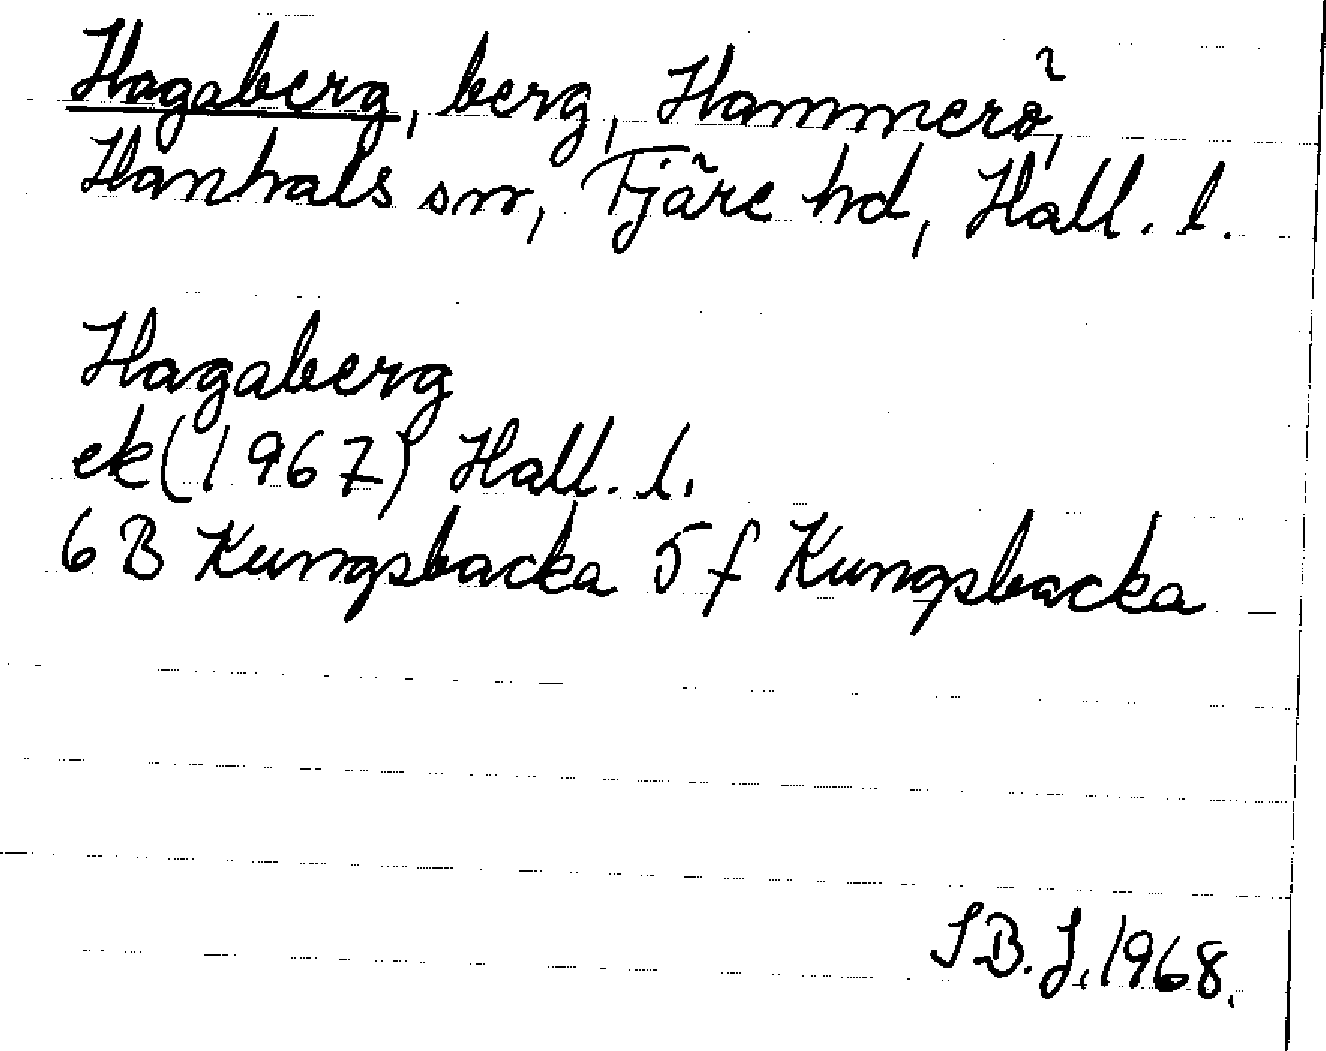 Hagaberg, berg, Hammerö,
Hanhals sn, Fjäre hd, Hall. l.
Hagaberg
ek (1967) Hall. l.
6 B Kungsbacka 5 f Kungsbacka
S.B.J. 1968.